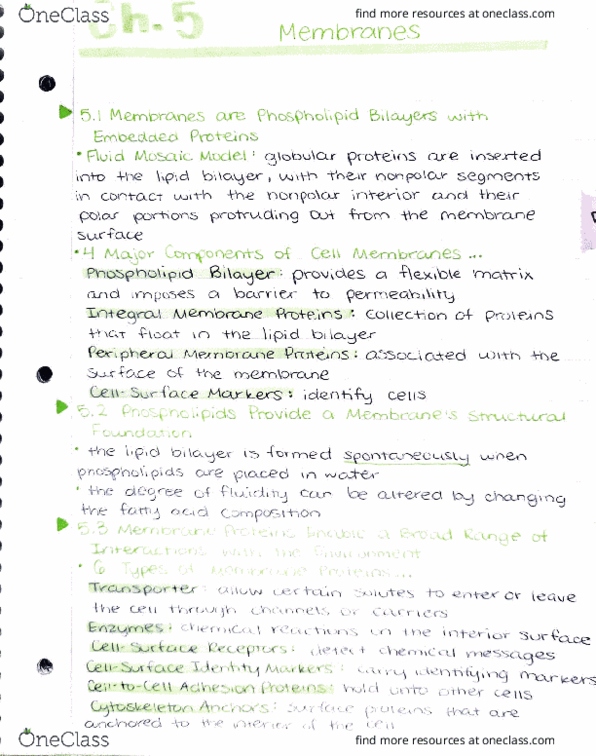 OneClass
find more resources at oneclass.com
Ch. 5
Membranes
5.1 Membranes are Phospholipid Bilayers with
Embedded Proteins
• Fluid Mosaic Model: globular proteins are inserted
into the lipid bilayer, with their nonpolar segments
in contact with the nonpolar interior and their
polar portions protruding out from the membrane
surface
• 4 Major Components of Cell Membranes...
Phospholipid Bilayer: provides a flexible matrix
and imposes a barrier to permeability
Integral Membrane Proteins: collection of proteins
that float in the lipid bilayer
Peripheral Membrane Proteins: associated with the
surface of the membrane
Cell-Surface Markers: identify cells
5.2 Phospholipids Provide a Membrane's Structural
Foundation
• the lipid bilayer is formed spontaneously when
phospholipids are placed in water
• the degree of fluidity can be altered by changing
the fatty acid composition
5.3 Membrane Proteins Enable a Broad Range of
Interactions with the Environment
• 6 Types of Membrane Proteins...
Transporter: allow certain solutes to enter or leave
the cell through channels or carriers
Enzymes: chemical reactions on the interior surface
Cell-Surface Receptors: detect chemical messages
Cell-Surface Identity Markers: carry identifying markers
Cell-to-Cell Adhesion Proteins: hold onto other cells
Cytoskeleton Anchors: surface proteins that are
anchored to the interior of the cell
OneClass
find more resources at oneclass.com